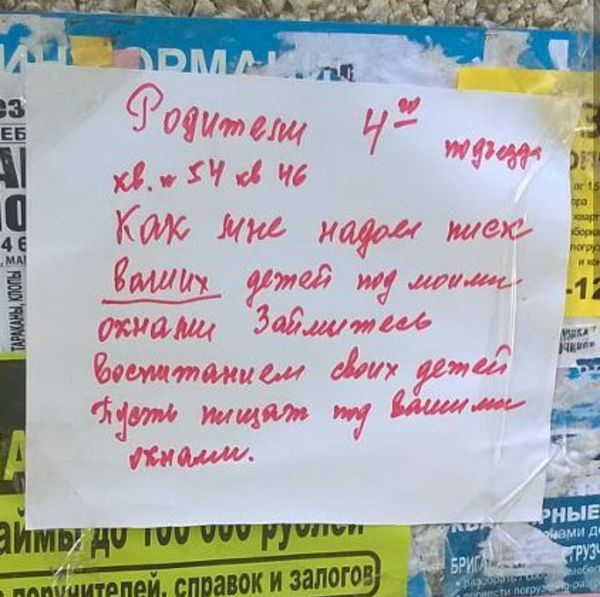 ИНФОРМАЦИ
Родители 4го подъезда
кв. 54 кв 46
Как мне надоел писк
ваших детей под моими
окнами Займитесь
воспитанием своих детей
Пусть пищат под вашими
окнами.
ТАРАКАНЫ, КЛОПЫ
аймы до 100 000 рублей
поручителей, справок и залогов